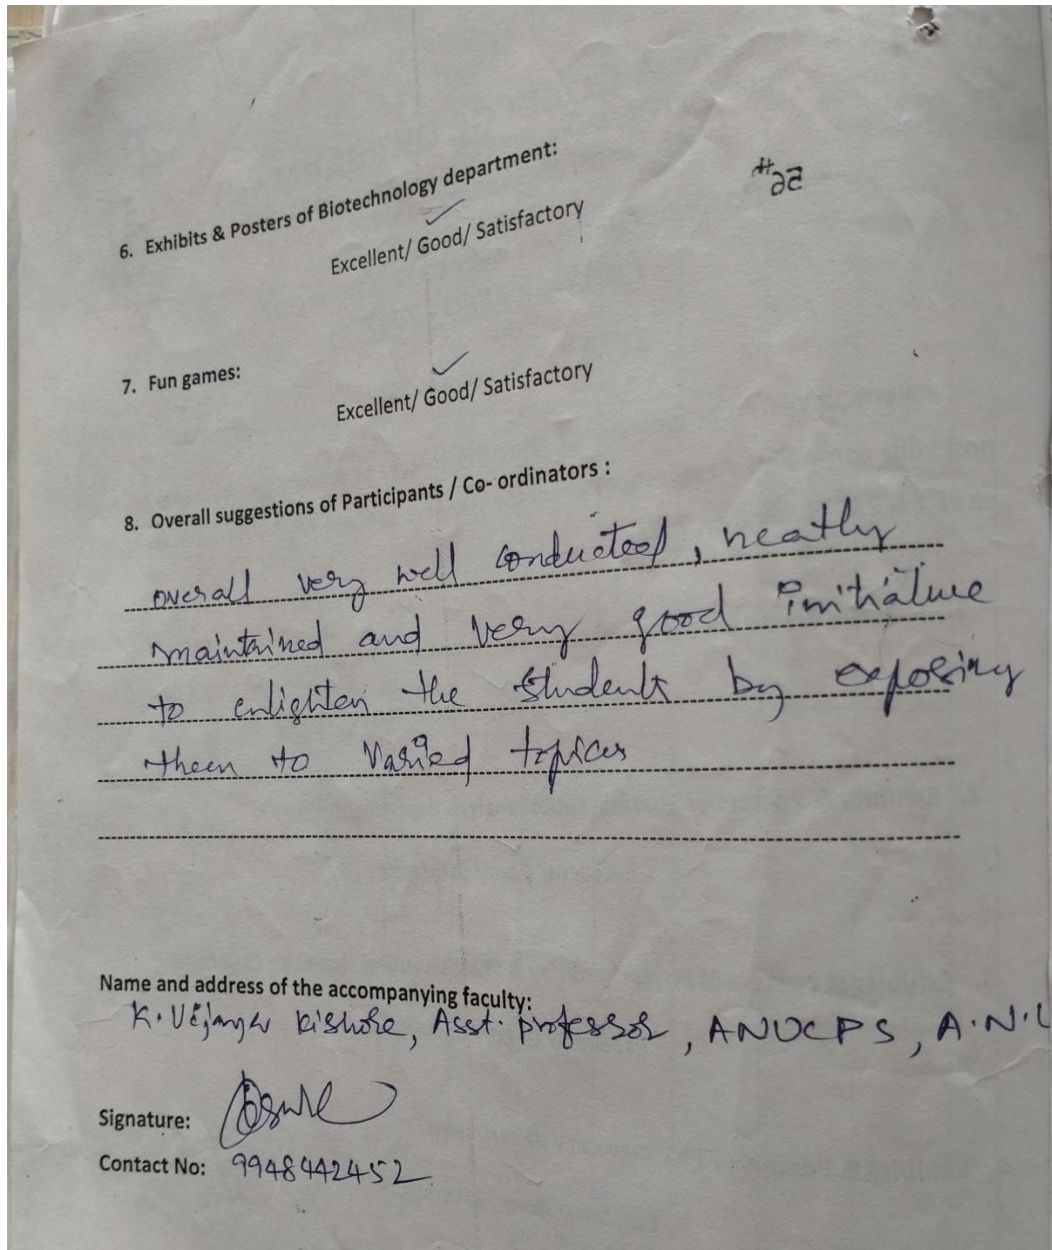 6. Exhibits & Posters of Biotechnology department:
Excellent/ Good/ Satisfactory
7. Fun games:
Excellent/ Good/ Satisfactory
8. Overall suggestions of Participants / Co- ordinators :
overall very well conducted, neatly
maintained and very good initiative
to enlighten the students by exposing
them to varied topics
Name and address of the accompanying faculty:
K. Kishore, Asst. professor, ANUCPS, A.N.U
Signature:
Contact No: 9948442452